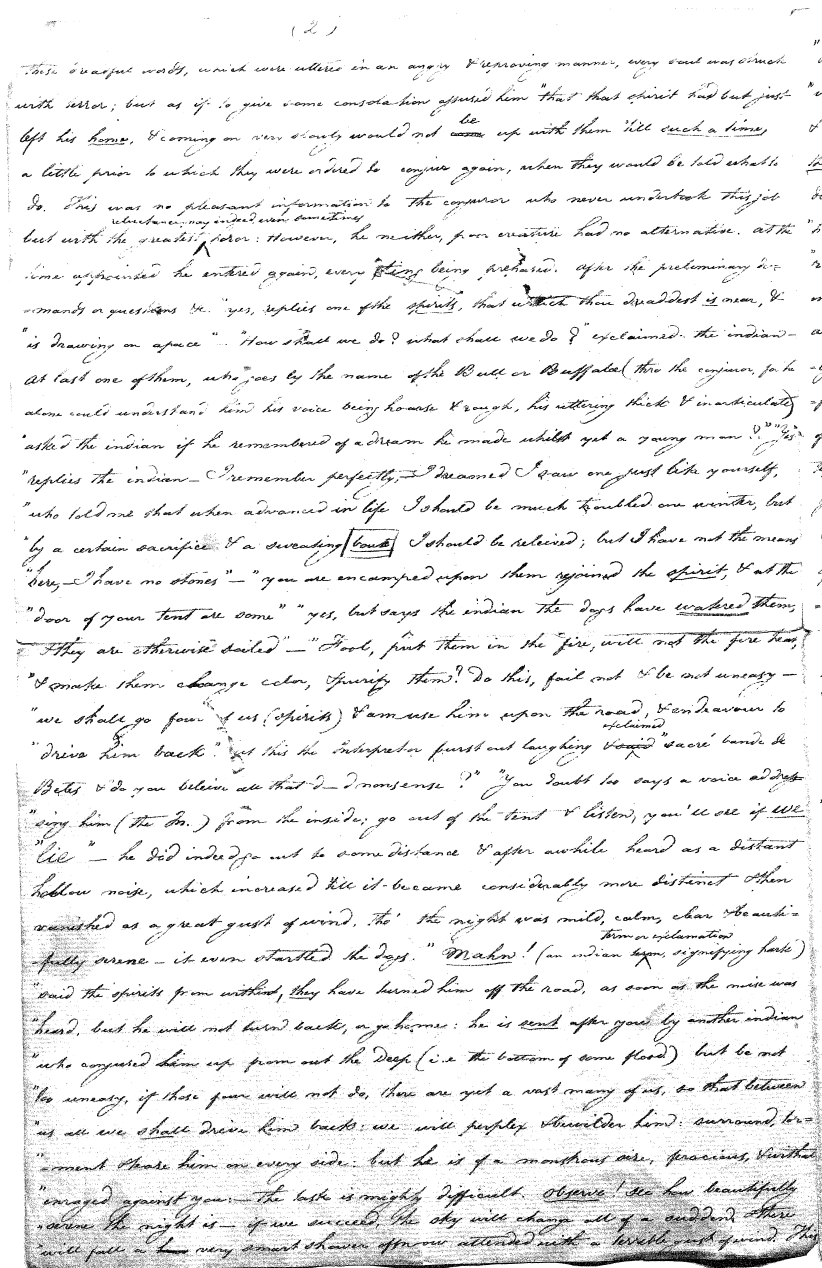 (2)
these dreadful words, which were uttered in an angry & reproving manner, every soul was struck
with terror; but as if to give some consolation assured him "that that spirit had but just
left his home, & coming on very slowly would not be
come up with them 'till such a time,
a little prior to which they were ordered to conjure again, when they would be told what to
do. This was no pleasant information to the conjuror who never undertook this job
reluctance nay indeed even sometimes
but with the greatest ^ terror: However, he neither, poor creature had no alternative. At the
time appointed he entered again, every thing being prepared. After the preliminary de=
=mands or questions &c. "yes, replies one of the spirits, that which thou dreaddest is near, &
"is drawing on apace" – "How shall we do? what shall we do?" exclaimed the indian –
At last one of them, who goes by the name of the Bull or Buffaloe (thro the conjuror, for he
alone could understand him his voice being hoarse & rough, his uttering thick & inarticulate)
"asked the indian if he remembered of a dream he made whilst yet a young man?" "Yes"
"replies the indian – I remember perfectly, – I dreamed I saw one just like yourself,
"who told me that when advanced in life I should be much troubled one winter, but
"by a certain sacrifice & a sweating bout I should be releived; but I have not the means
"here, – I have no stones" – "you are encamped upon them rejoined the spirit, & at the
"door of your tent are some" "yes, but says the indian the dogs have watered them,
"& they are otherwise soiled" – "Fool, put them in the fire, will not the fire heat,
"& make them change color, & purify them? Do this, fail not & be not uneasy –
"we shall go four of us (spirits) & amuse him upon the road, & endeavour to
"drive him back". at this the Interpretor burst out laughing & said ^ exclaimed "sacré bande de
Betes & do you beleive all that d–d nonsense?" "You doubt too says a voice addres-
"sing him (the In.) from the inside; go out of the tent & listen, you'll see if we
"lie" – he did indeed go out to some distance & after awhile heard as a distant
hollow noise, which increased till it became considerably more distinct & then
vanished as a great gust of wind, tho' the night was mild, calm, clear & beauti=
=fully serene – it even startled the dogs. "Mahn! (an indian term ^ term or exclamation, signifying hark)
"said the spirits from within, they have turned him off the road, as soon as the noise was
"heard, but he will not turn back, or go home: he is sent after you by another indian
"who conjured him up from out the Deep (i.e the bottom of some flood) but be not
"too uneasy, if those four will not do, there are yet a vast many of us, so that between
"us all we shall drive him back: we will perplex & bewilder him: surround, tor=
=ment & teare him on every side: but he is of a monstrous size, ferocious, & withal
"enraged against you: – the task is mighty difficult. Observe! see how beautifully
"serene the night is – if we succeed, the sky will change all of a sudden, & there
"will fall a very smart shower of snow attended with a terrible gust of wind. This